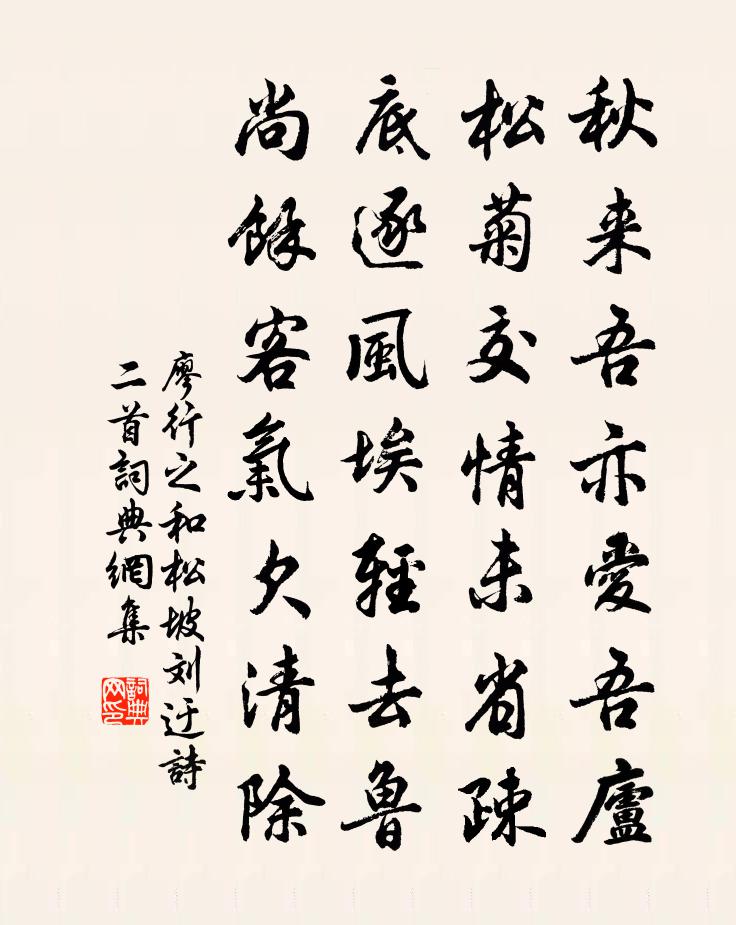 秋来吾亦愛吾廬
松菊交情未省疎
底逐風埃輕去魯
尚餘客氣欠清除
廖行之和松坡刘迂詩
二首詞典網集
詞典网印